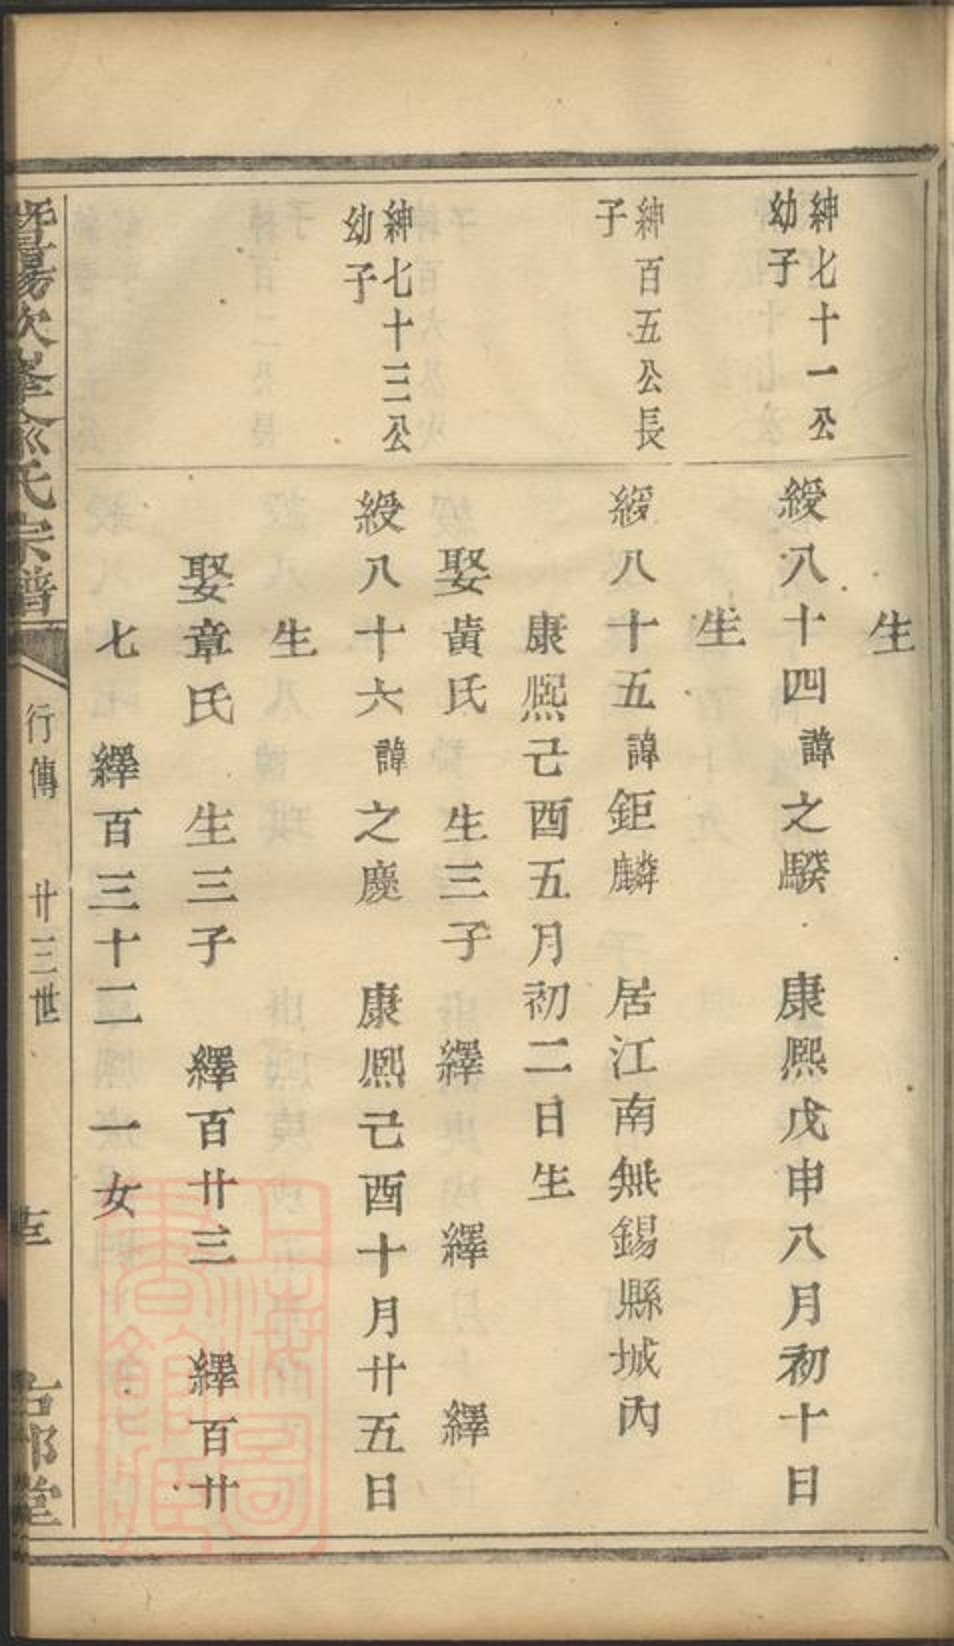 生
紳七十一公
幼子
綬八十四諱之騤　康熙戊申八月初十日
生
紳百五公長
子
綬八十五諱鉅麟　居江南無錫縣城內
康熙己酉五月初二日生
娶黃氏　生三子　繹　繹　繹
紳七十三公
幼子
綬八十六諱之慶　康熙己酉十月廿五日
生
娶章氏　生三子　繹百廿三　繹百廿
七　繹百三十二　一女
暨陽次峯俞氏宗譜
行傳　廿三世